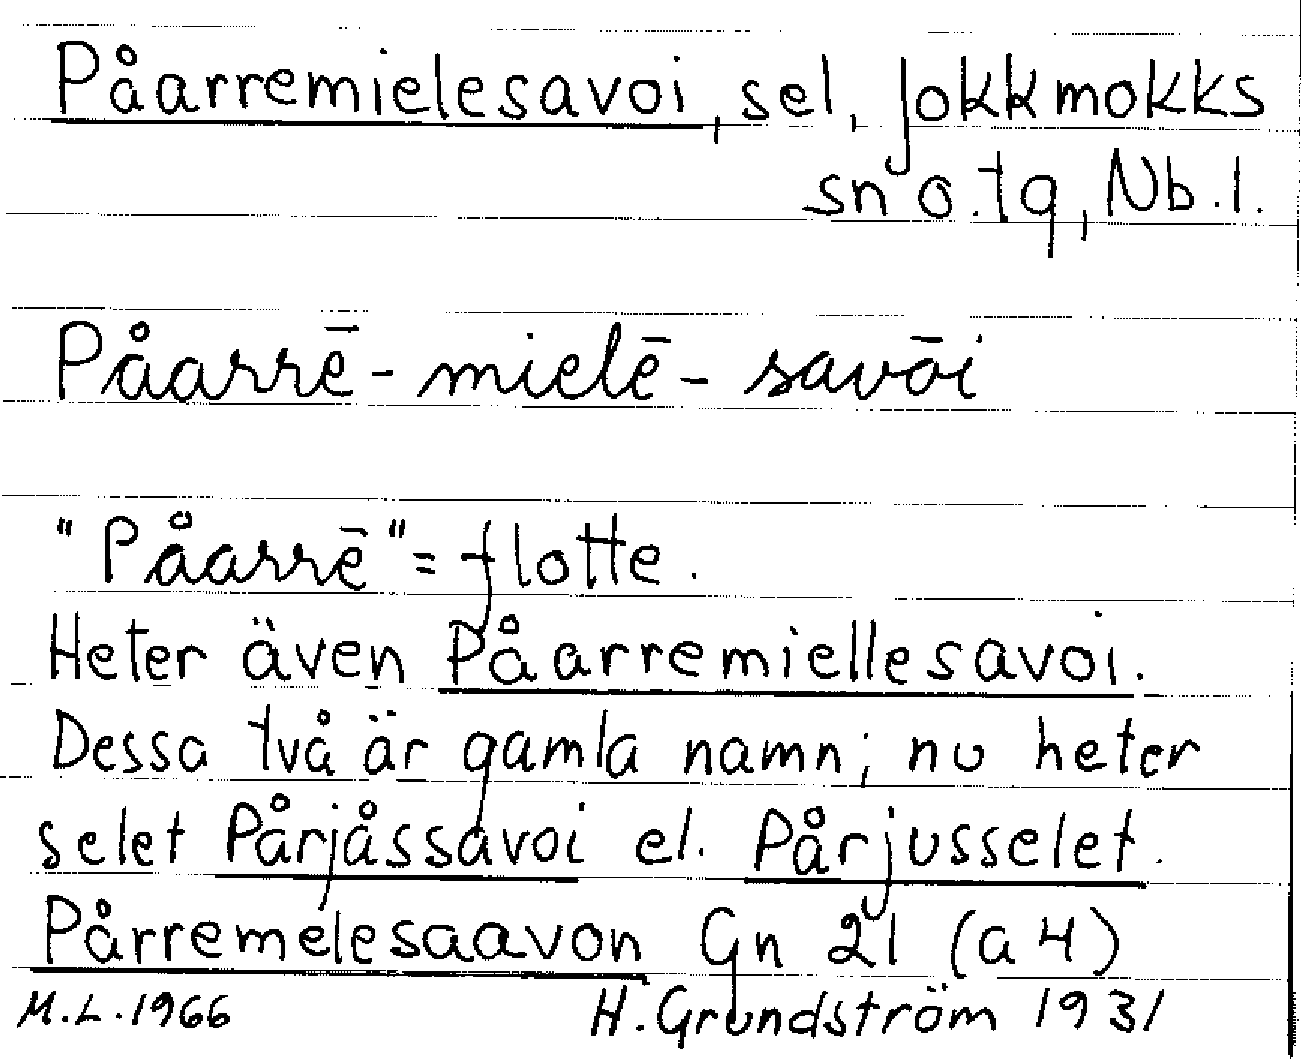 Påarremielesavoi, sel, Jokkmokks
sn o. tg, Nb. l.
Påarrē - mielē - savōi
"Påarrē" = flotte.
Heter även Påarremiellesavoi.
Dessa två är gamla namn; nu heter
selet Pårjåssavoi el. Pårjusselet.
Pårremelesaavon Gn 21 (a 4)
M.L. 1966 H. Grundström 1931